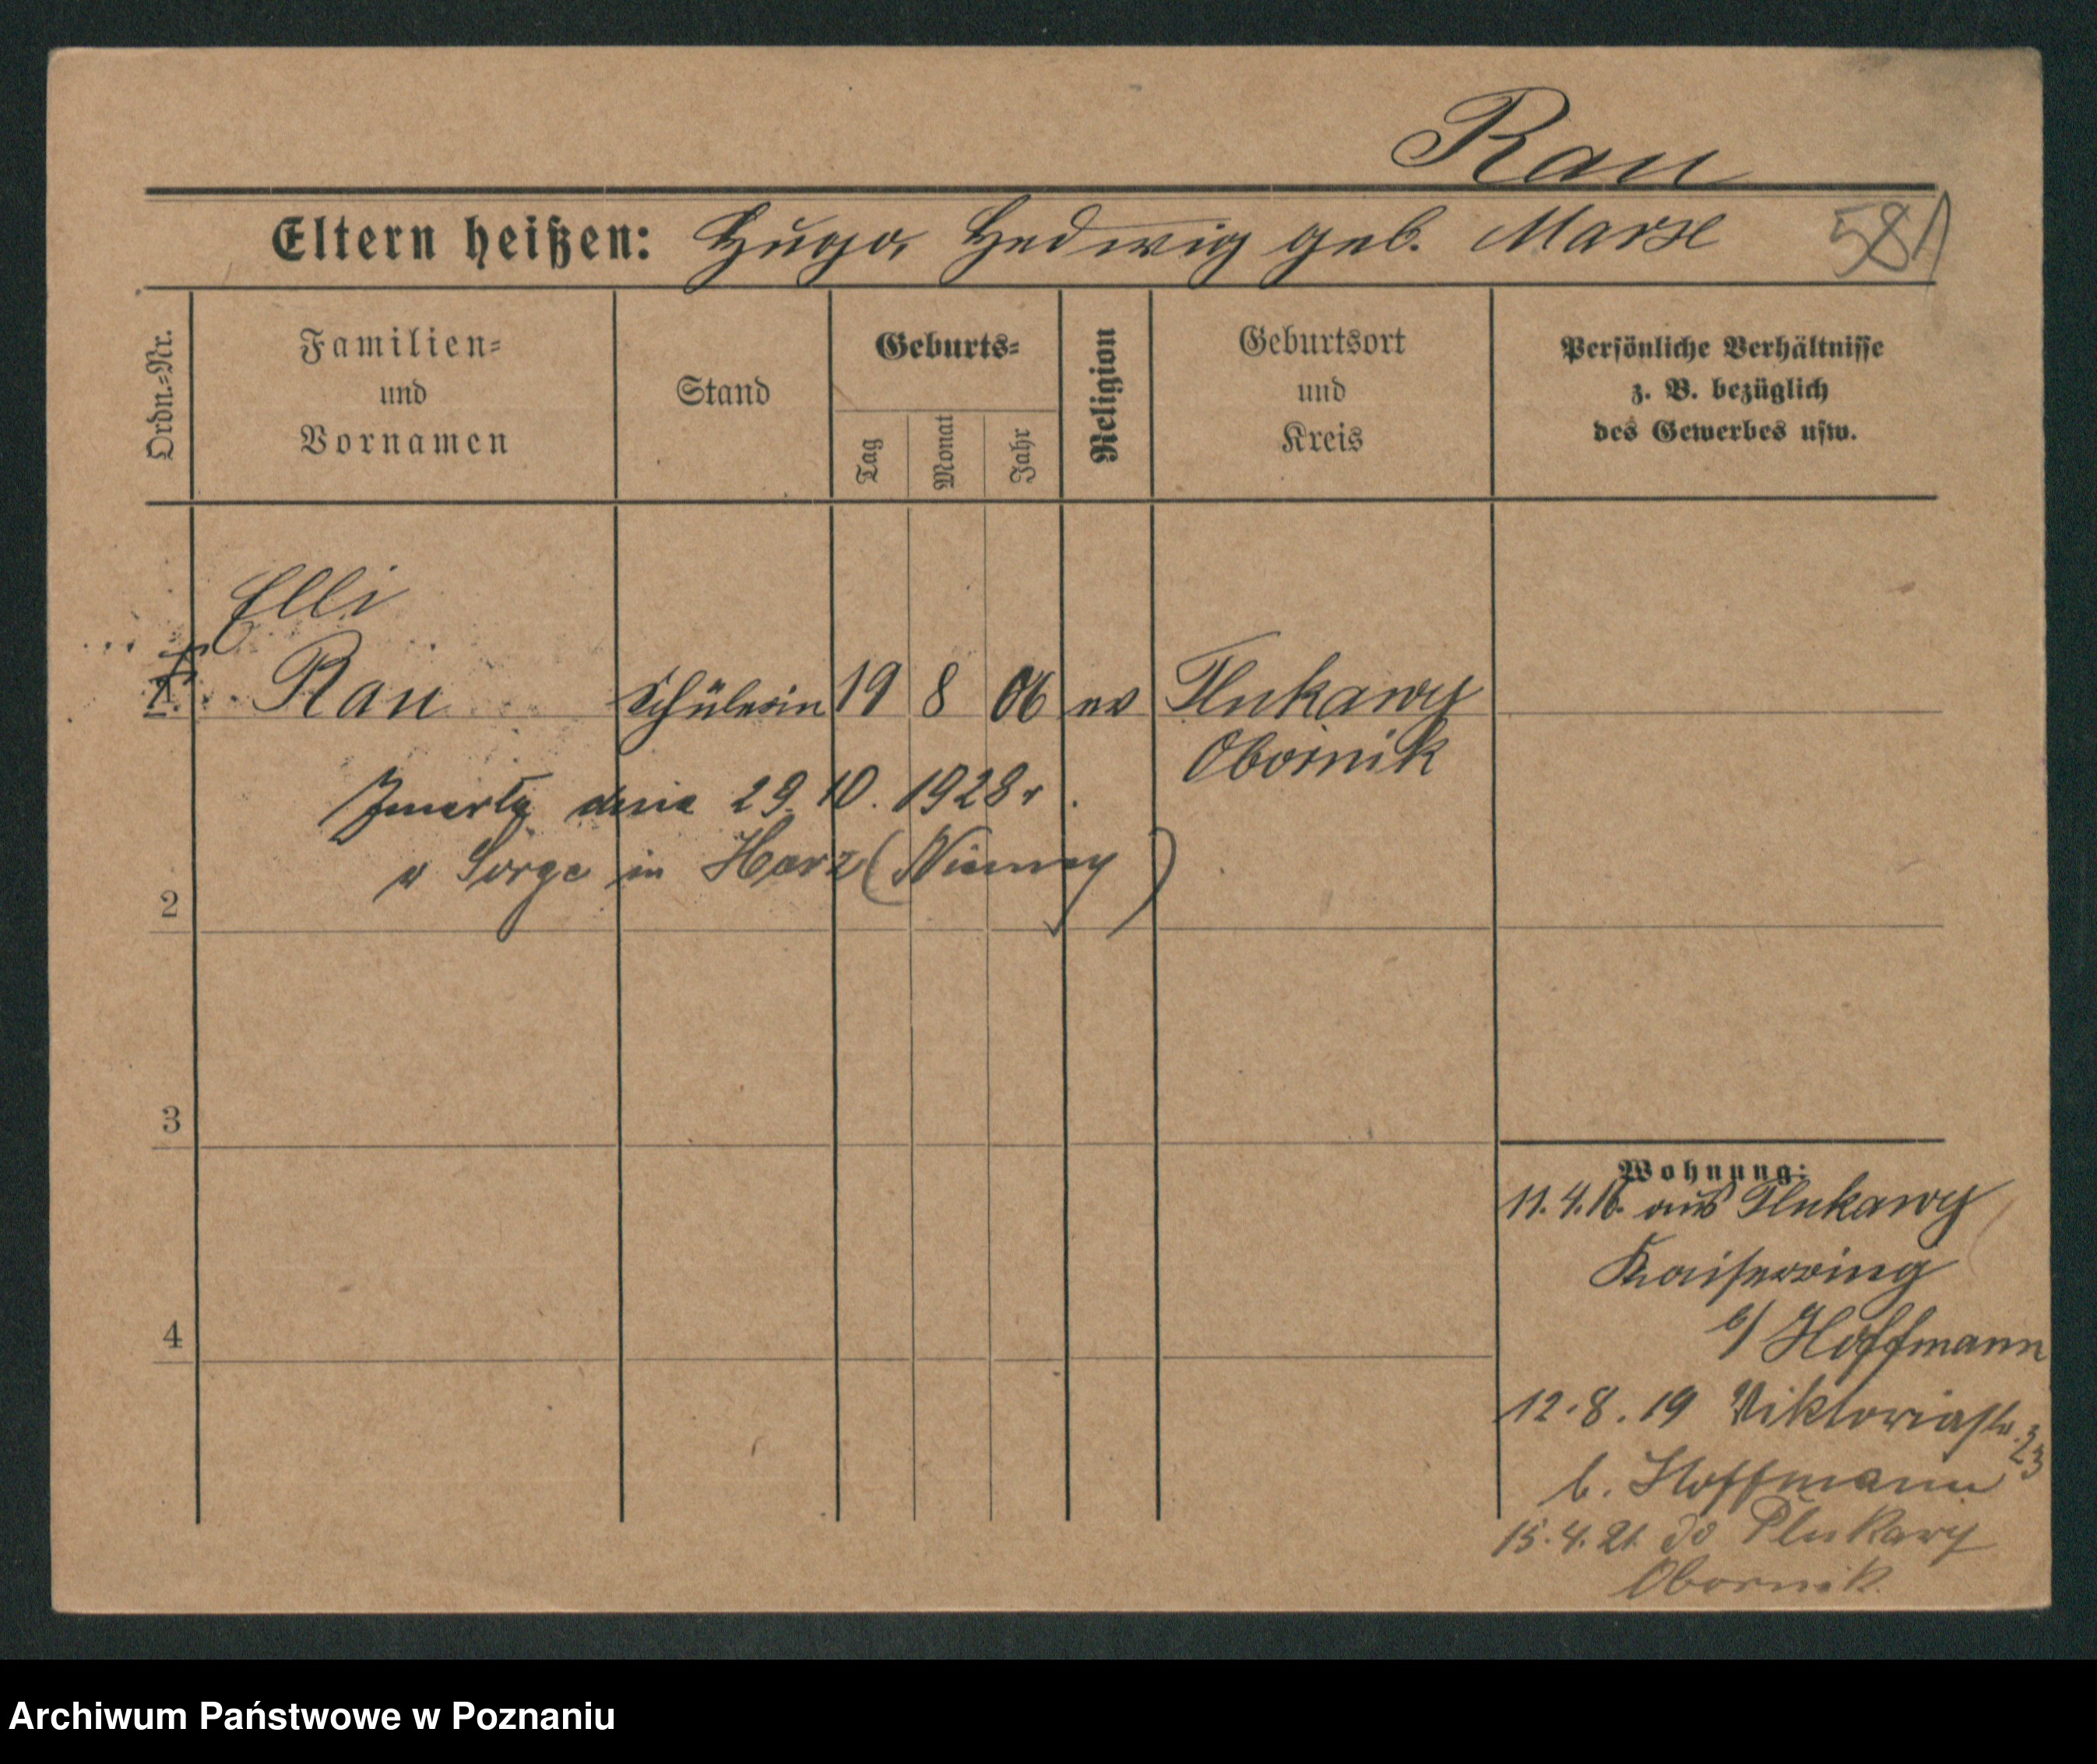 Rau
Eltern heißen: Hugo, Hedwig geb. Marx
581
Ordn.-Nr.
Familien-
und
Vornamen
Stand
Geburts-
Tag
Monat
Jahr
Religion
Geburtsort
und
Kreis
Persönliche Verhältnisse
z. B. bezüglich
des Gewerbes usw.
Elli
1. Rau Schülerin 19 8 06 ev Tlukawy
Obornik
Zmarła dnia 29.10.1928 r.
w Sorge in Harz (Niemcy)
2
3
4
Wohnung:
11.4.16. aus Tlukawy
Kaiserring
b/ Hoffmann
12.8.19 Viktoriastr. 23
b. Hoffmann
15.4.21. do Tlukawy
Obornik.
Archiwum Państwowe w Poznaniu